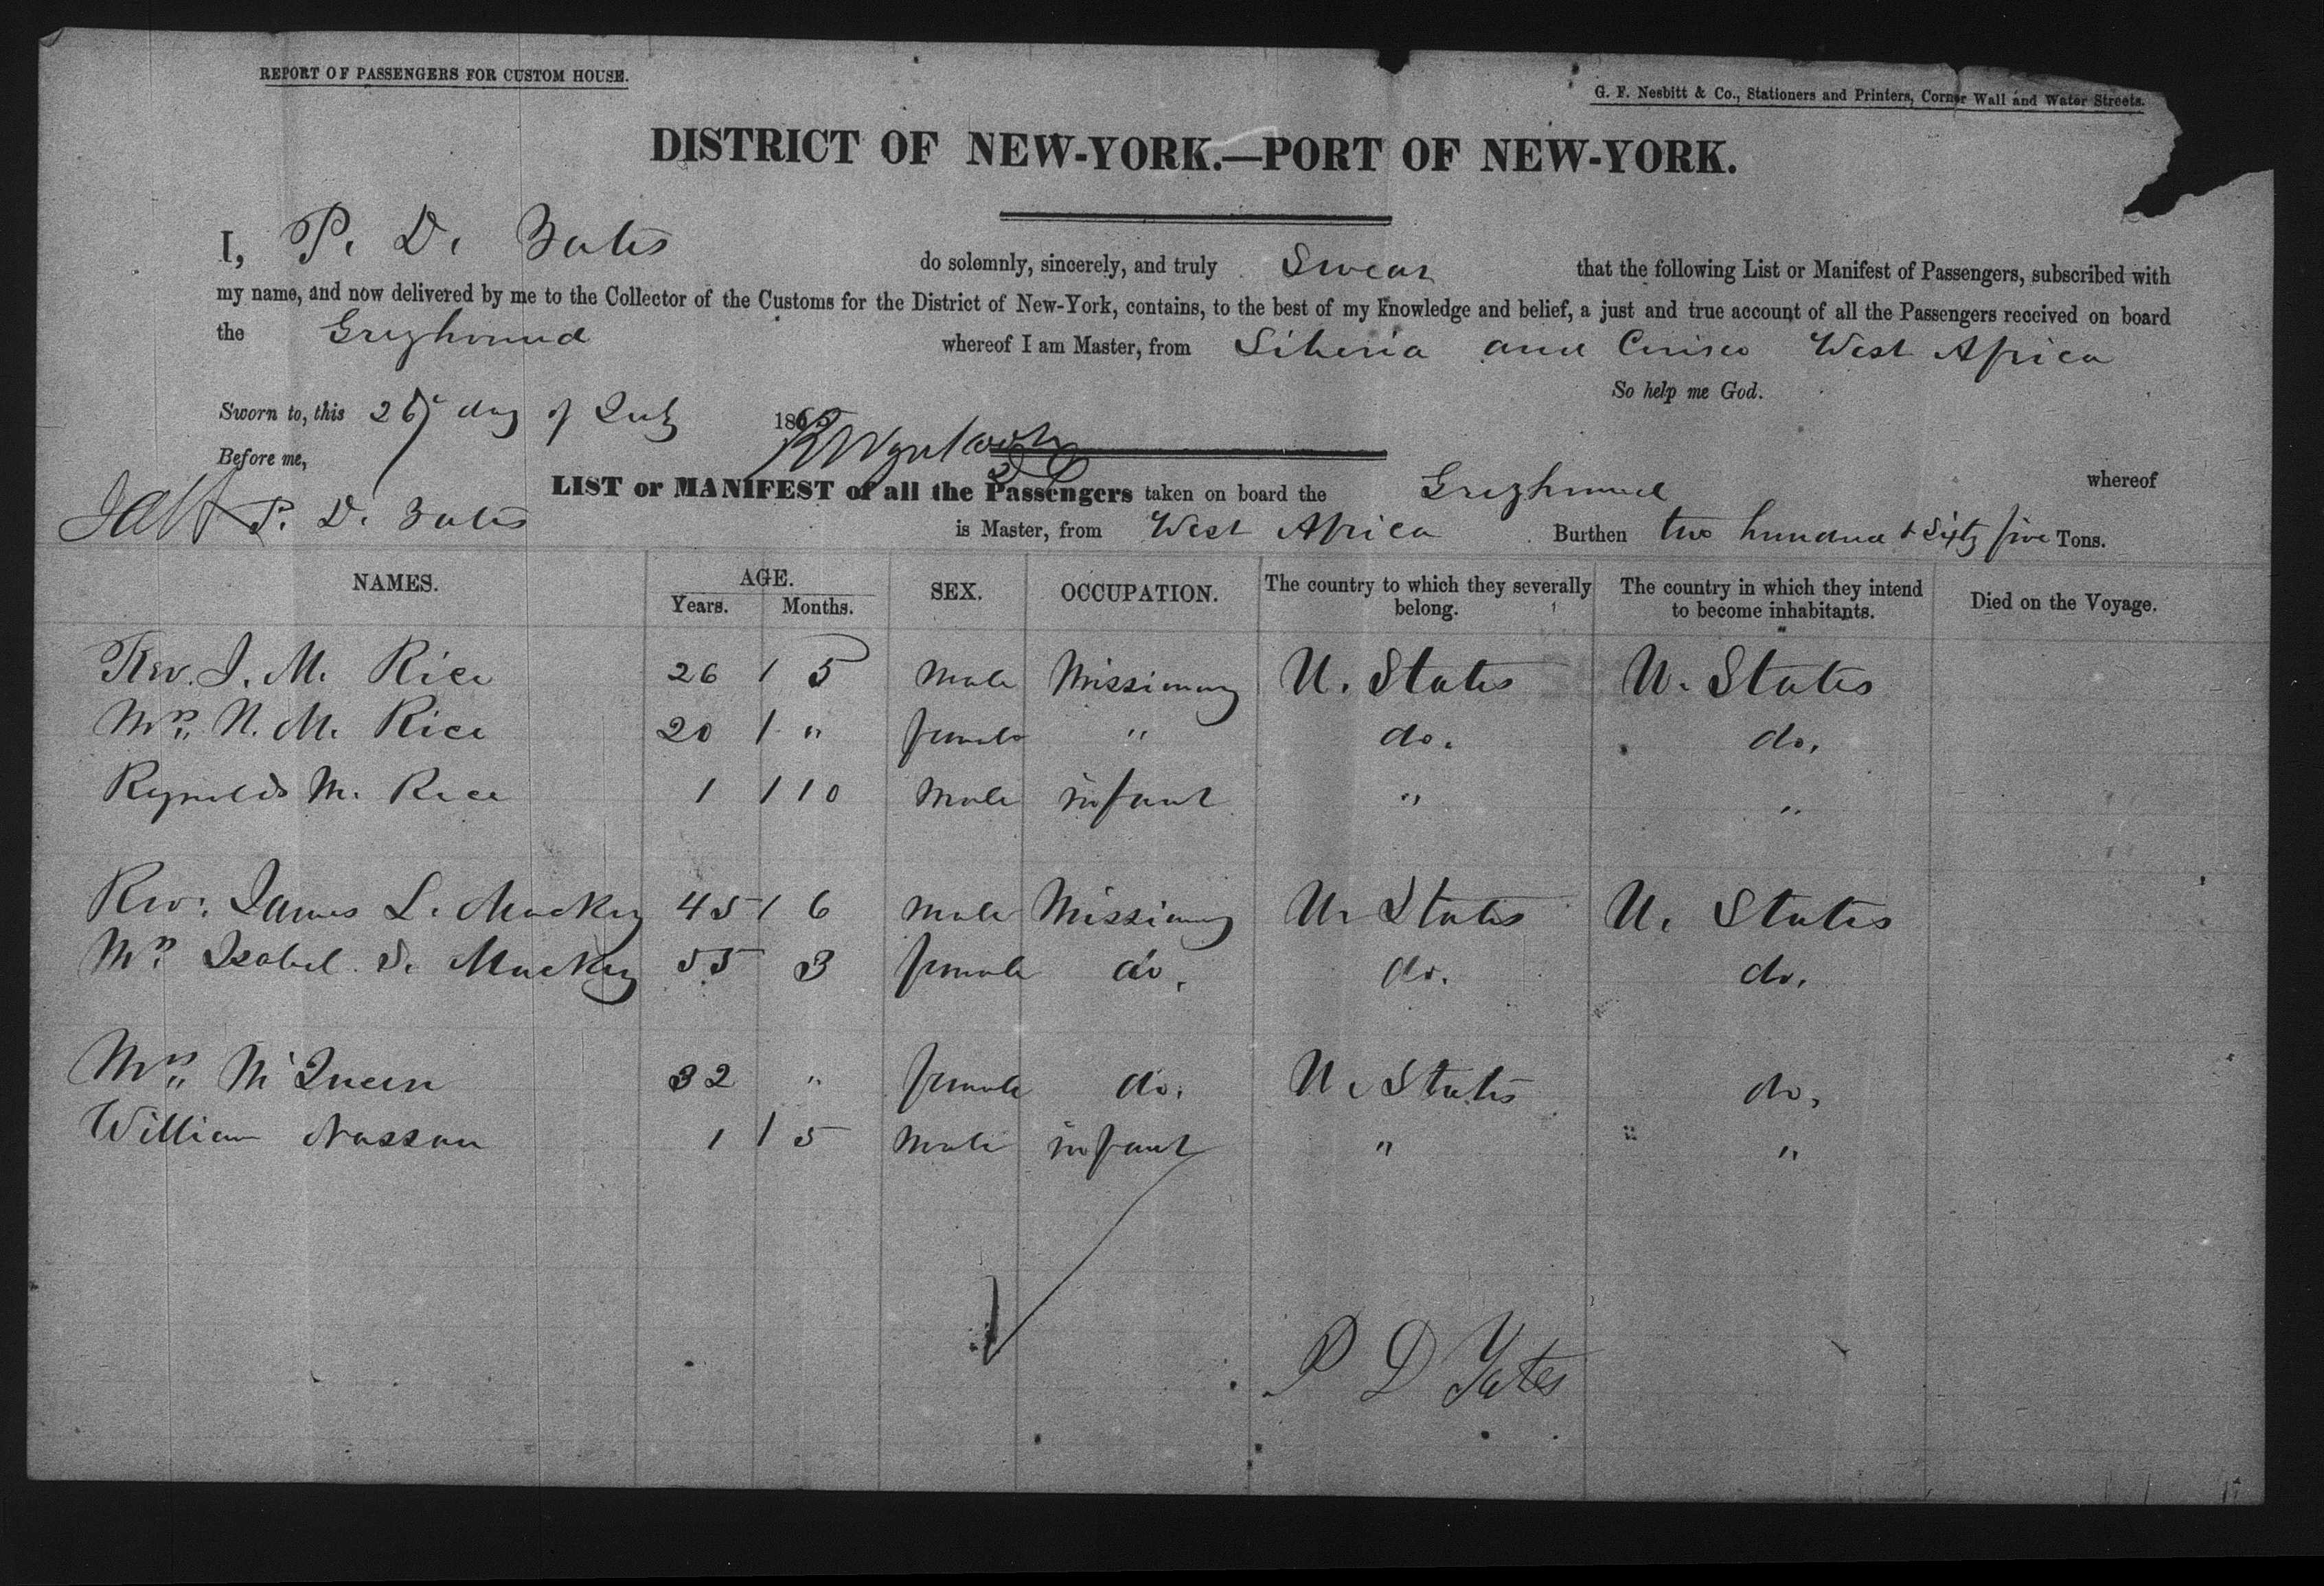 REPORT OF PASSENGERS FOR CUSTOM HOUSE.
G. F. Nesbitt & Co., Stationers and Printers, Corner Wall and Water Streets.
DISTRICT OF NEW-YORK.—PORT OF NEW-YORK.
I, P. D. Yates do solemnly, sincerely, and truly Swear that the following List or Manifest of Passengers, subscribed with
my name, and now delivered by me to the Collector of the Customs for the District of New-York, contains, to the best of my knowledge and belief, a just and true account of all the Passengers received on board
the Greyhound whereof I am Master, from Liberia and Corisco West Africa
So help me God.
Sworn to, this 26 day of July 1865
Before me,
LIST or MANIFEST of all the Passengers taken on board the Greyhound whereof
P. D. Yates is Master, from West Africa Burthen two hundred & Sixty five Tons.
NAMES. AGE. Years. Months. SEX. OCCUPATION. The country to which they severally belong. The country in which they intend to become inhabitants. Died on the Voyage.
Rev. J. M. Rice 26 / 5 Male Missionary U. States U. States
Mrs. N. M. Rice 20 / " female " do. do.
Reynolds M. Rice 1 / 10 Male infant " "
Rev: James L. Mackey 45 / 6 Male Missionary U. States U. States
Mrs. Isabel S. Mackey 55 3 female do. do. do.
Mrs. McQueen 32 " female do. U. States do.
William Nassau 1 / 5 Male infant " "
P D Yates